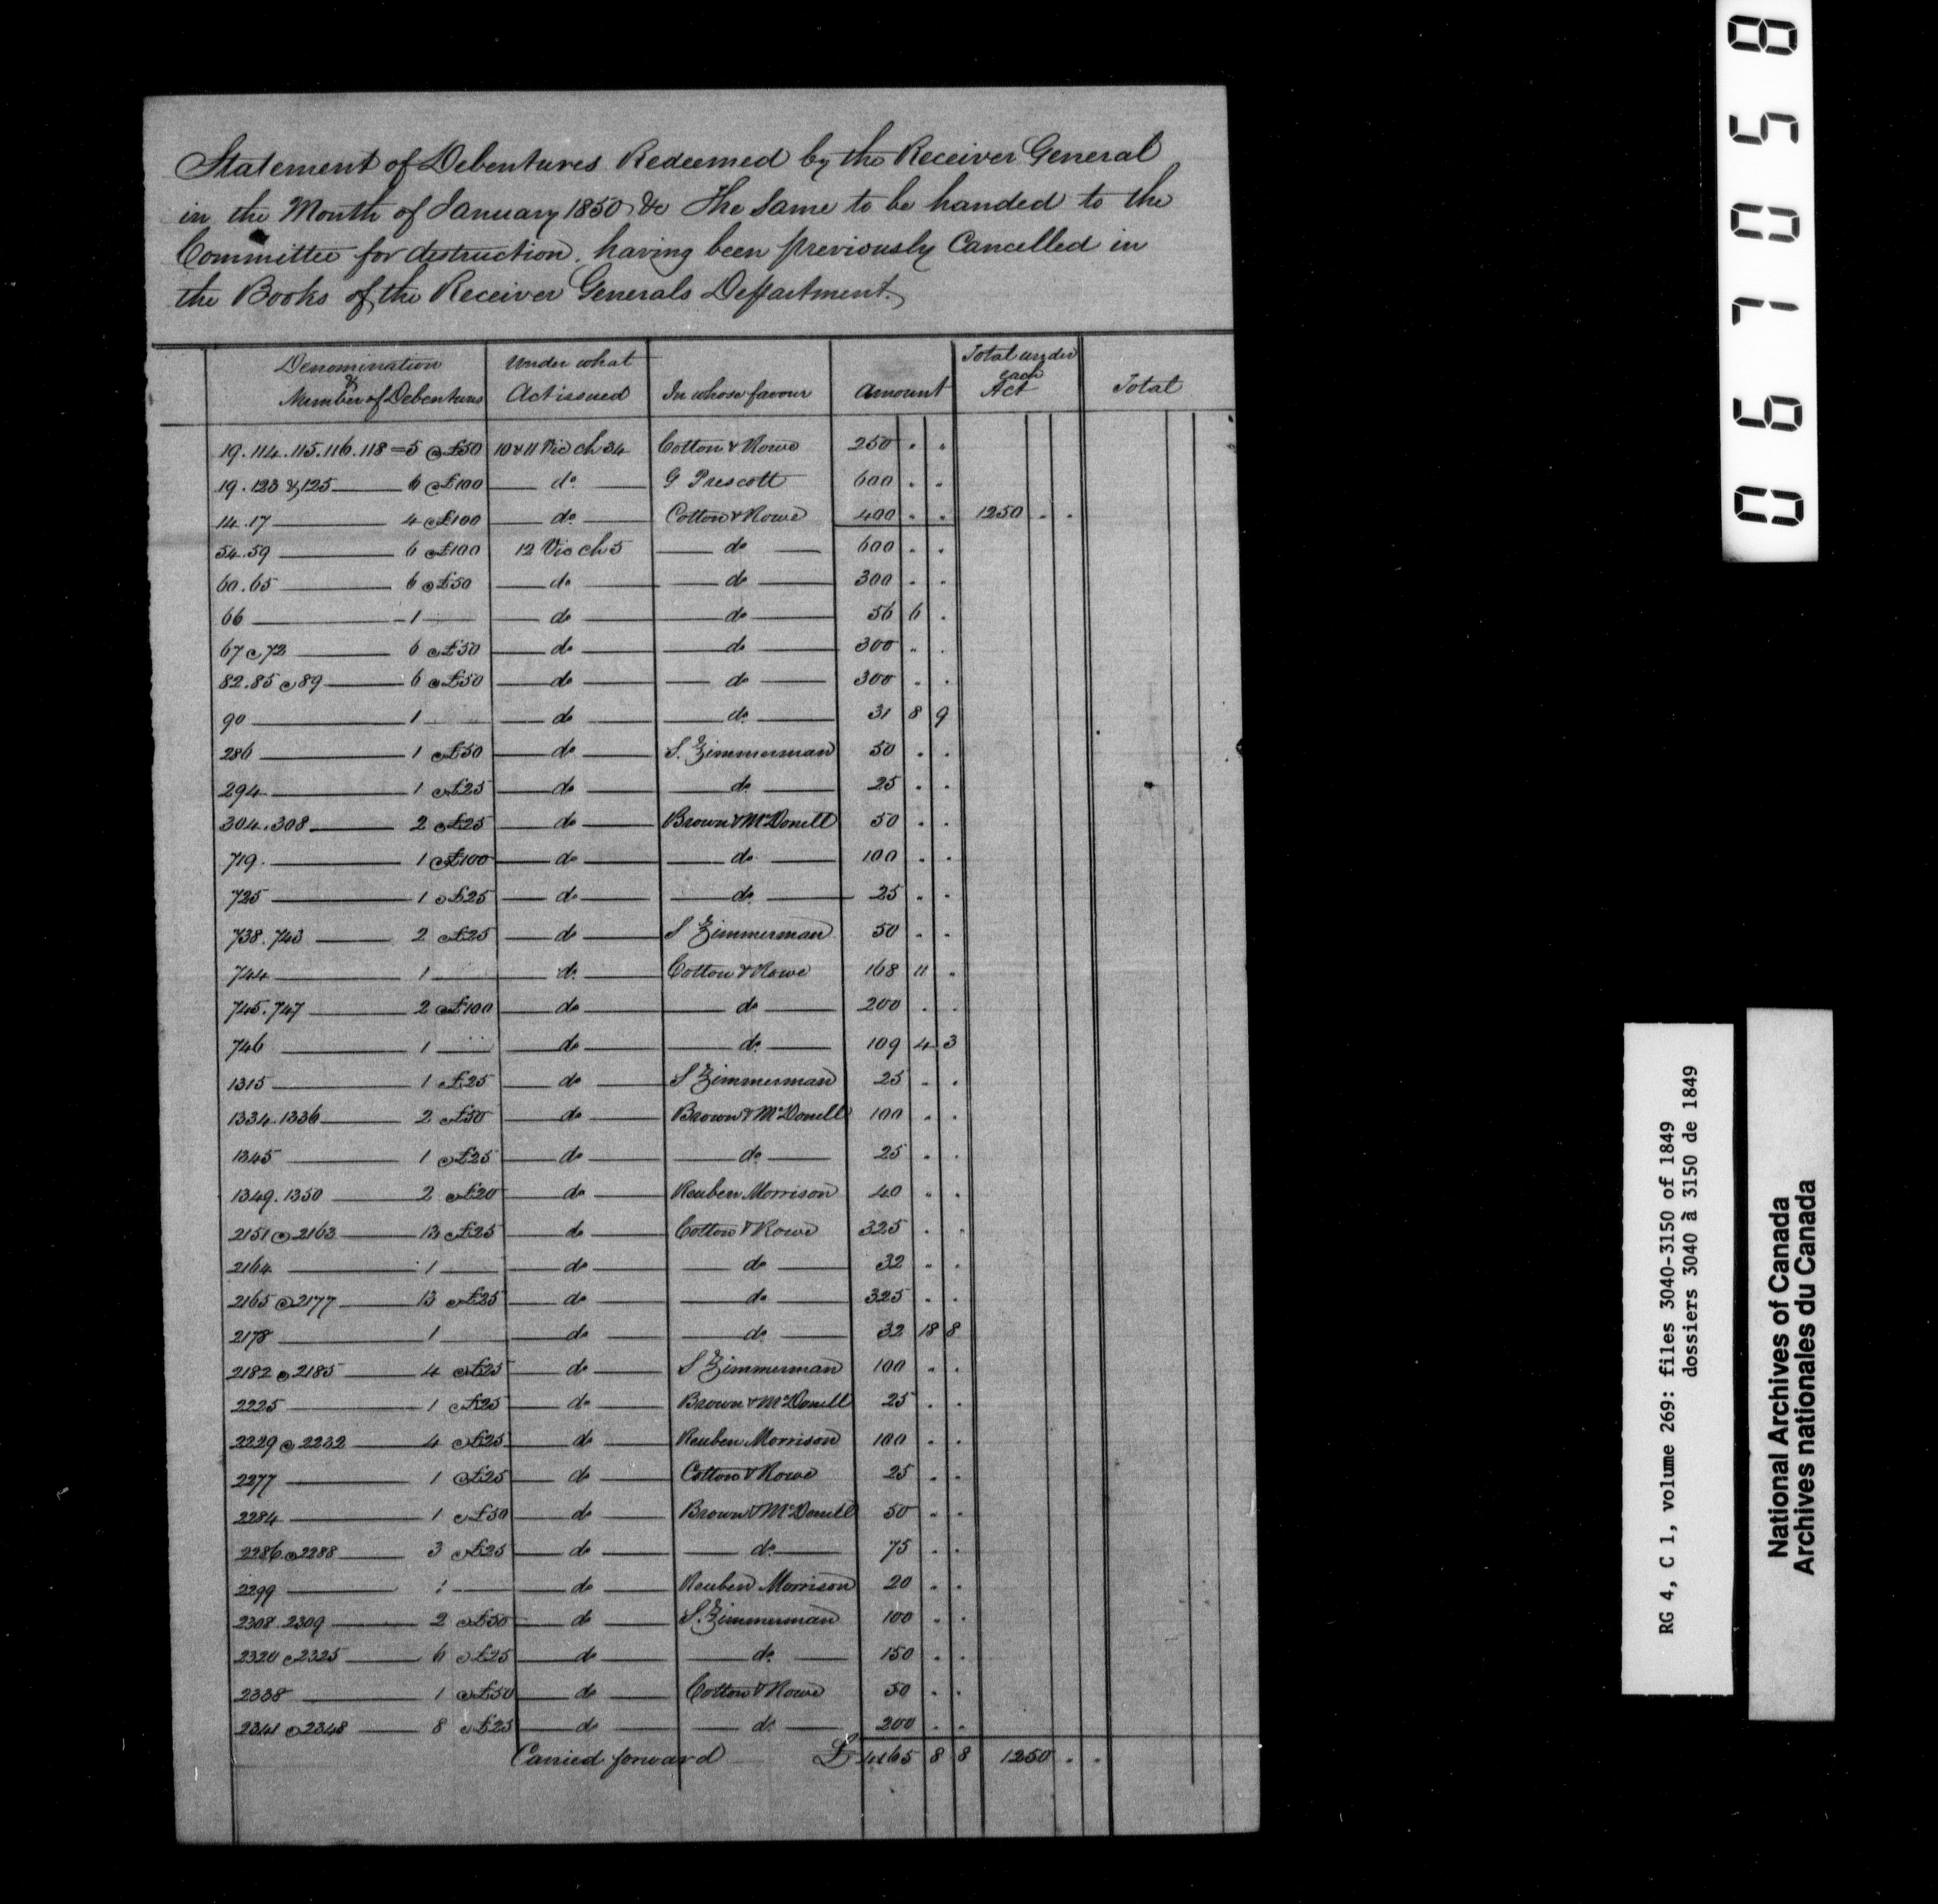 Statement of Debentures Redeemed by the Receiver General
in the Month of January 1850 &c The Same to be handed to the
Committee for destruction, having been previously Cancelled in
the Books of the Receiver Generals Deffartment.
Denomination & Number of Debentures | Under what Act issued | In whose favour | Amount | Total under each Act | Total
19.114.115.116.118=5 @ £50 10 & 11 Vic ch 34 Cotton & Rowe 250 . .
19.123 & 125 6 @ £100 do G Prescott 600 . .
14.17 4 @ £100 do Cotton & Rowe 400 . . 1250 . .
54.59 6 @ £100 12 Vic ch 5 do 600 . .
60.65 6 @ £50 do do 300 . .
66 1 do do 56 6 .
67 @ 72 6 @ £50 do do 300 . .
82.85 @ 89 6 @ £50 do do 300 . .
90 1 do do 31 8 9
286 1 @ £50 do S. Zimmerman 50 . .
294 1 @ £25 do do 25 . .
304.308 2 @ £25 do Brown & McDonell 50 . .
719. 1 @ £100 do do 100 . .
725 1 @ £25 do do 25 . .
738.743 2 @ £25 do S Zimmerman 50 . .
744 1 do Cotton & Rowe 168 11 .
745.747 2 @ £100 do do 200 . .
746 1 do do 109 4 3
1315 1 £25 do S Zimmerman 25 . .
1334.1336 2 £50 do Brown & McDonell 100 . .
1345 1 @ £25 do do 25 . .
1349.1350 2 @ £20 do Reuben Morrison 40 . .
2151 @ 2163 13 @ £25 do Cotton & Rowe 325 . .
2164 1 do do 32 . .
2165 @ 2177 13 @ £25 do do 325 . .
2178 1 do do 32 18 8
2182 @ 2185 4 @ £25 do S Zimmerman 100 . .
2225 1 @ £25 do Brown & McDonell 25 . .
2229 @ 2232 4 @ £25 do Reuben Morrison 100 . .
2277 1 @ £25 do Cotton & Rowe 25 . .
2284 1 @ £50 do Brown & McDonell 50 . .
2286 @ 2288 3 @ £25 do do 75 . .
2299 1 do Reuben Morrison 20 . .
2308.2309 2 @ £50 do S. Zimmerman 100 . .
2320 @ 2325 6 @ £25 do do 150 . .
2338 1 @ £50 do Cotton & Rowe 50 . .
2341 @ 2348 8 @ £25 do do 200 . .
Carried forward £ 4165 8 8 1250 . .
067058
RG 4, C 1, volume 269: files 3040-3150 of 1849
dossiers 3040 à 3150 de 1849
National Archives of Canada
Archives nationales du Canada